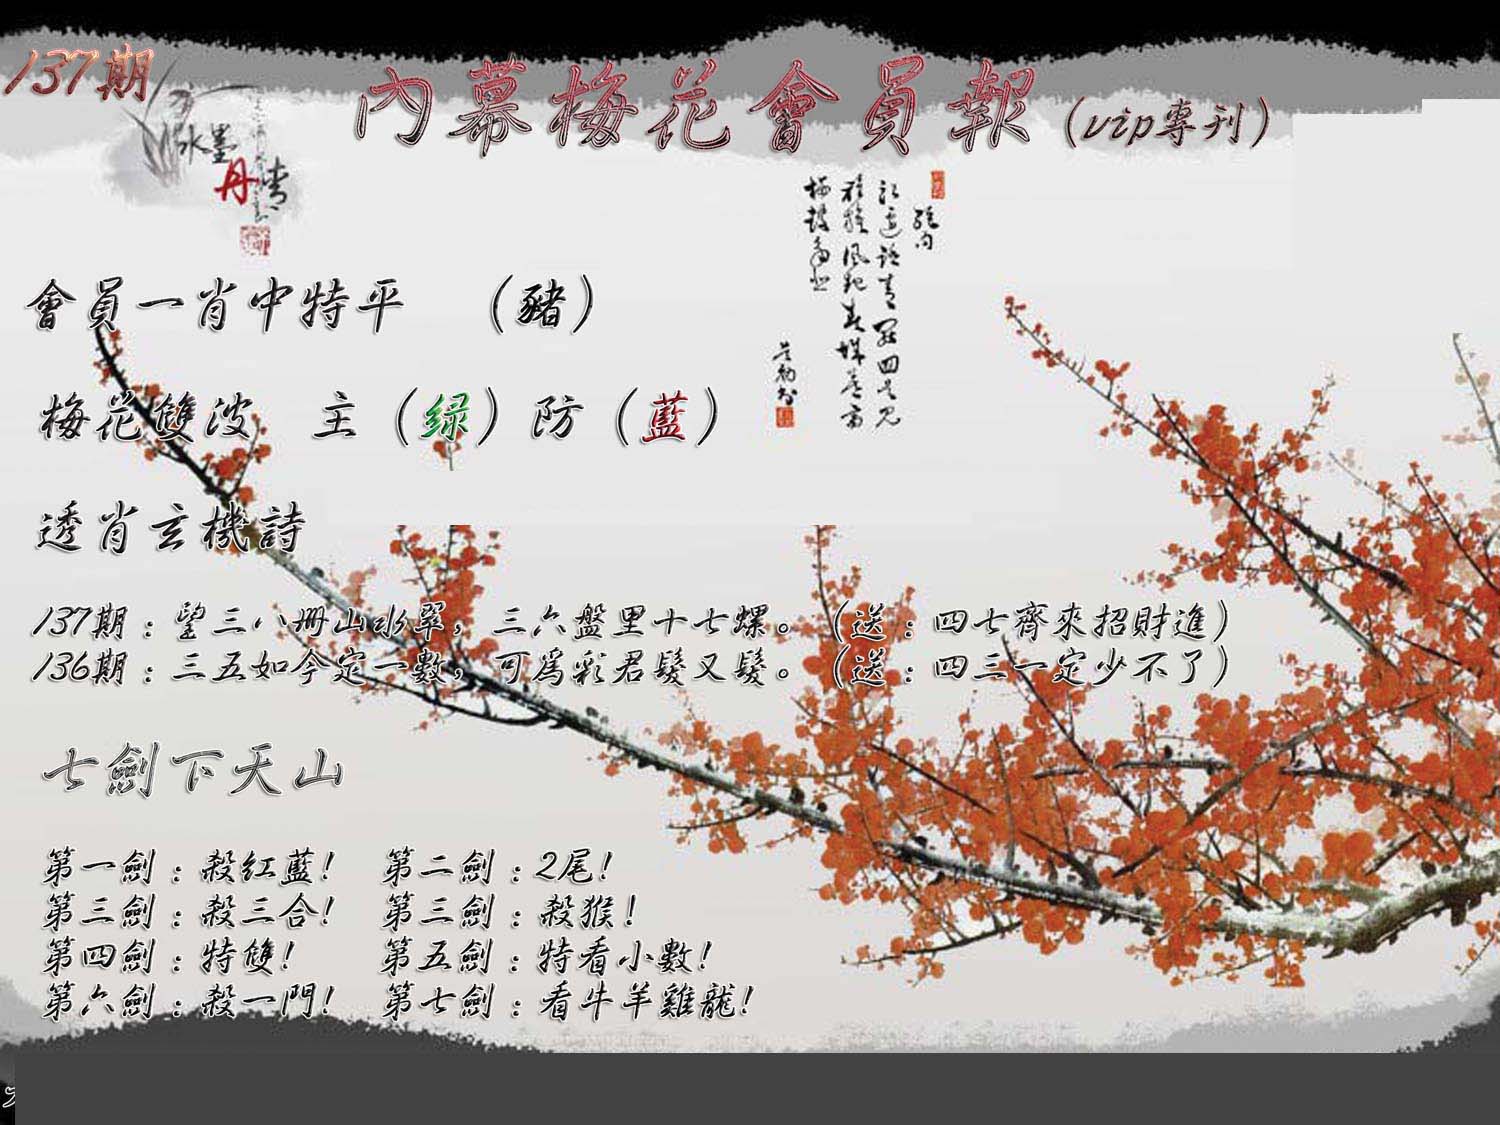 137期
內幕梅花會員報（vip專刊）
水墨
丹青
會員一肖中特平 （豬）
梅花雙波 主（绿）防（藍）
透肖玄機詩
137期：望三八册山水翠，三六盤里十七螺。（送：四七齊來招財進）
136期：三五如今定一數，可爲彩君髮又髮。（送：四三一定少不了）
七劍下天山
第一劍：殺紅藍！ 第二劍：2尾！
第三劍：殺三合！ 第三劍：殺猴！
第四劍：特雙！ 第五劍：特看小數！
第六劍：殺一門！ 第七劍：看牛羊雞龍！